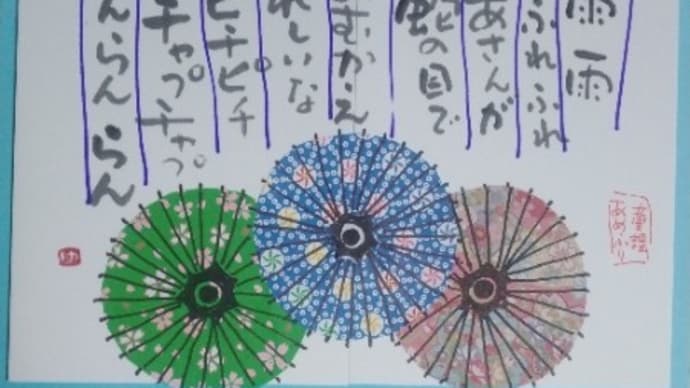 雨雨
ふれふれ
あさんが
蛇の目で
むかえ
れしいな
ピチピチ
チャプチャプ
んらんらん
童謡
あめふり